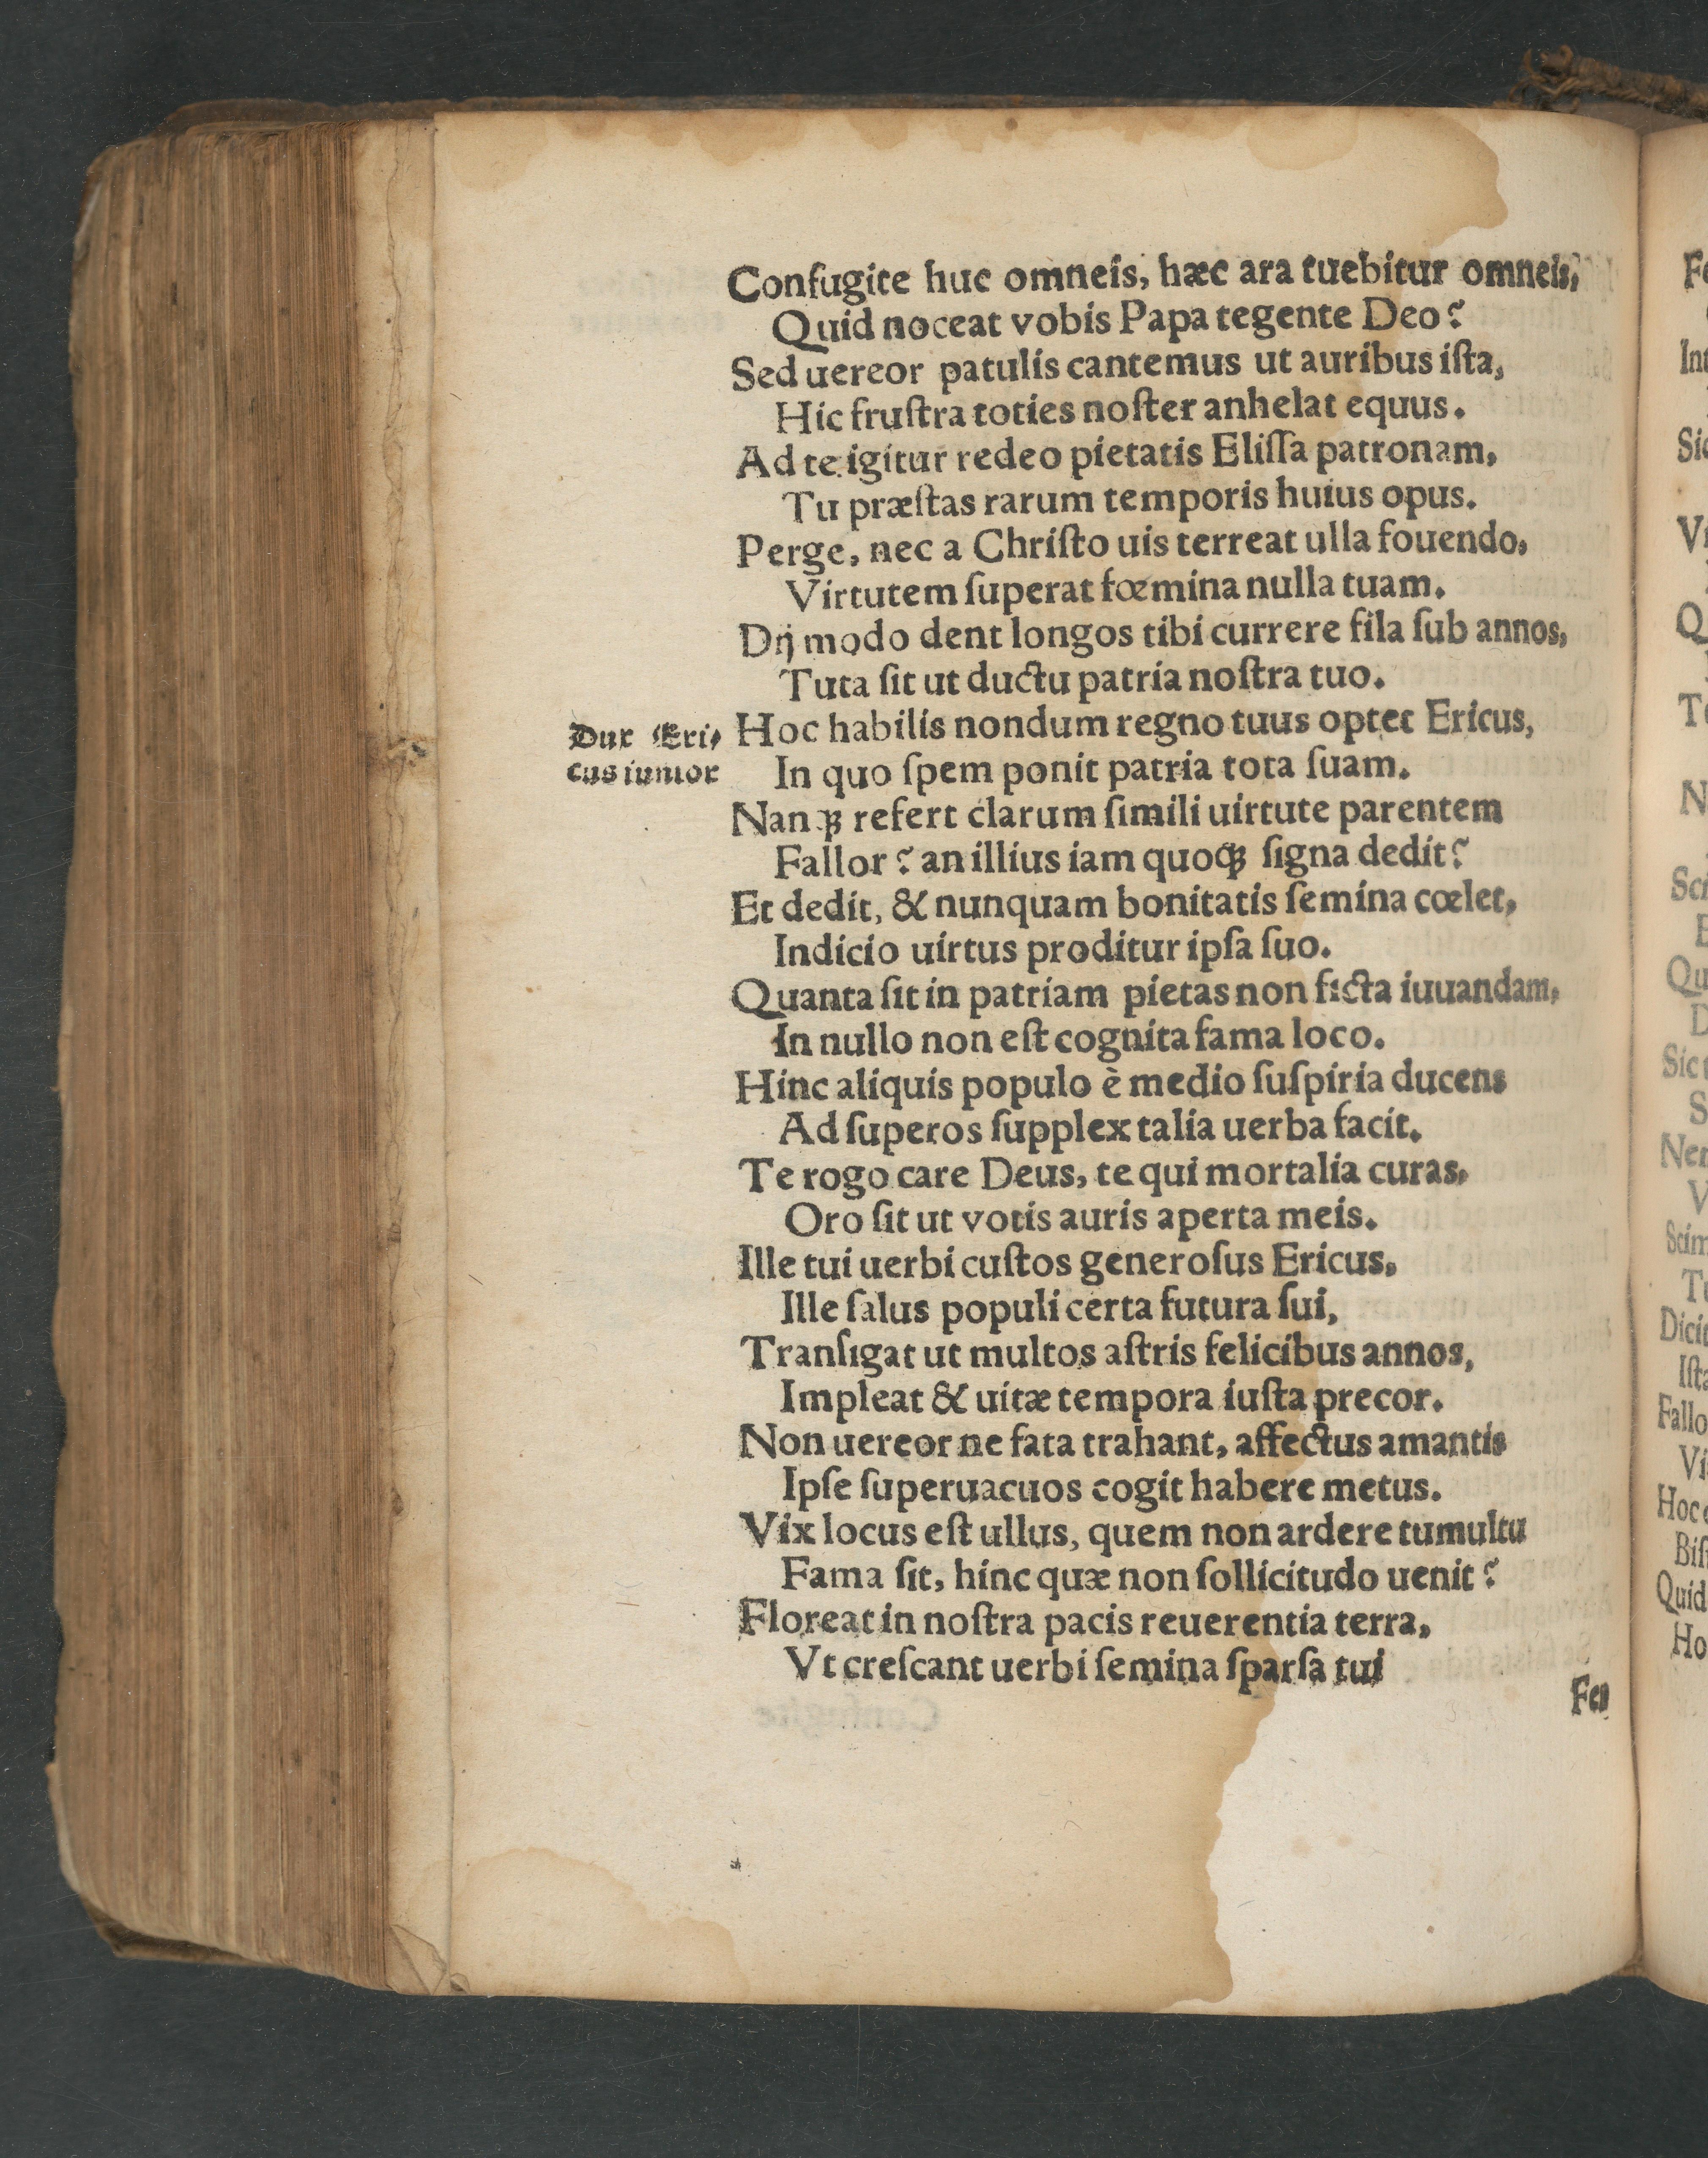 Confugite huc omneis, hæc ara tuebitur omneis,
Quid noceat vobis Papa tegente Deo?
Sed uereor patulis cantemus ut auribus iſta,
Hic fruſtra toties noſter anhelat equus.
Ad te igitur redeo pietatis Eliſſa patronam,
Tu præſtas rarum temporis huius opus.
Perge, nec a Chriſto uis terreat ulla fouendo,
Virtutem ſuperat fœmina nulla tuam.
Dij modo dent longos tibi currere fila ſub annos,
Tuta ſit ut ductu patria noſtra tuo.
Dux Eri⸗
cus iunior
Hoc habilis nondum regno tuus optet Ericus,
In quo ſpem ponit patria tota ſuam.
Nanꝗ refert clarum ſimili uirtute parentem
Fallor? an illius iam quoꝗ ſigna dedit?
Et dedit, & nunquam bonitatis ſemina cœlet,
Indicio uirtus proditur ipſa ſuo.
Quanta ſit in patriam pietas non ficta iuuandam,
In nullo non eſt cognita fama loco.
Hinc aliquis populo è medio ſuſpiria ducens
Ad ſuperos ſupplex talia uerba facit.
Te rogo care Deus, te qui mortalia curas,
Oro ſit ut votis auris aperta meis.
Ille tui uerbi cuſtos generoſus Ericus,
Ille ſalus populi certa futura ſui,
Tranſigat ut multos aſtris felicibus annos,
Impleat & uitæ tempora iuſta precor.
Non uereor ne fata trahant, affectus amantis
Ipſe ſuperuacuos cogit habere metus.
Vix locus eſt ullus, quem non ardere tumultu
Fama ſit, hinc quæ non ſollicitudo uenit?
Floreat in noſtra pacis reuerentia terra,
Vt creſcant uerbi ſemina ſparſa tui